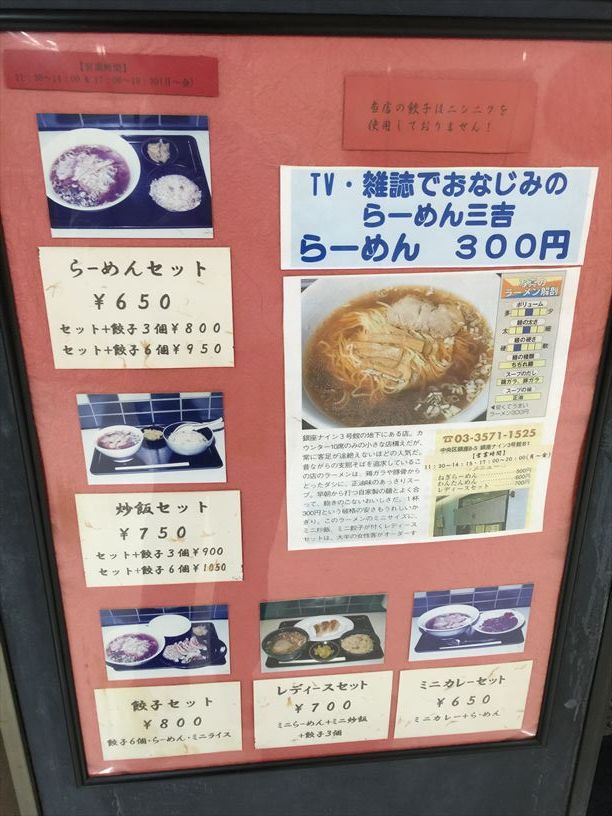 【営業時間】
11:30～14:00 & 17:00～19:30(月～金)
当店の餃子はニンニクを
使用しておりません！
TV・雑誌でおなじみの
らーめん三吉
らーめん 300円
らーめんセット
￥650
セット+餃子3個￥800
セット+餃子6個￥950
ラーメン解剖
ボリューム
多 少
麺の太さ
太 細
麺の硬さ
硬 軟
麺の種類
ちぢれ麺
スープのだし
鶏ガラ、豚ガラ
スープの味
正油
◀安くてうまい
ラーメン300円
銀座ナイン3号館の地下にある店。カ
ウンター10席のみの小さな店構えだが、
常に客足が途絶えないほどの人気だ。
昔ながらの支那そばを追求しているこ
の店のラーメンは、鶏ガラや豚骨から
とったダシに、正油味のあっさりスー
プ。早朝から打つ自家製の麺とよく合
って、飽きのこないおいしさだ。1杯
300円という破格の安さもうれしいか
ぎり。このラーメンのミニサイズに、
ミニ炒飯、ミニ餃子が付くレディース
セットは、大半の女性客がオーダーす
☎03-3571-1525
中央区銀座8-5 銀座ナイン3号館B1
【営業時間】
11:30-14:15・17:00-20:00(月～金)
メニュー
ねぎらーめん 500円
わんたんめん 600円
レディースセット 700円
炒飯セット
￥750
セット+餃子3個￥900
セット+餃子6個￥1050
餃子セット
￥800
餃子6個・らーめん・ミニライス
レディースセット
￥700
ミニらーめん+ミニ炒飯
+餃子3個
ミニカレーセット
￥650
ミニカレー+らーめん